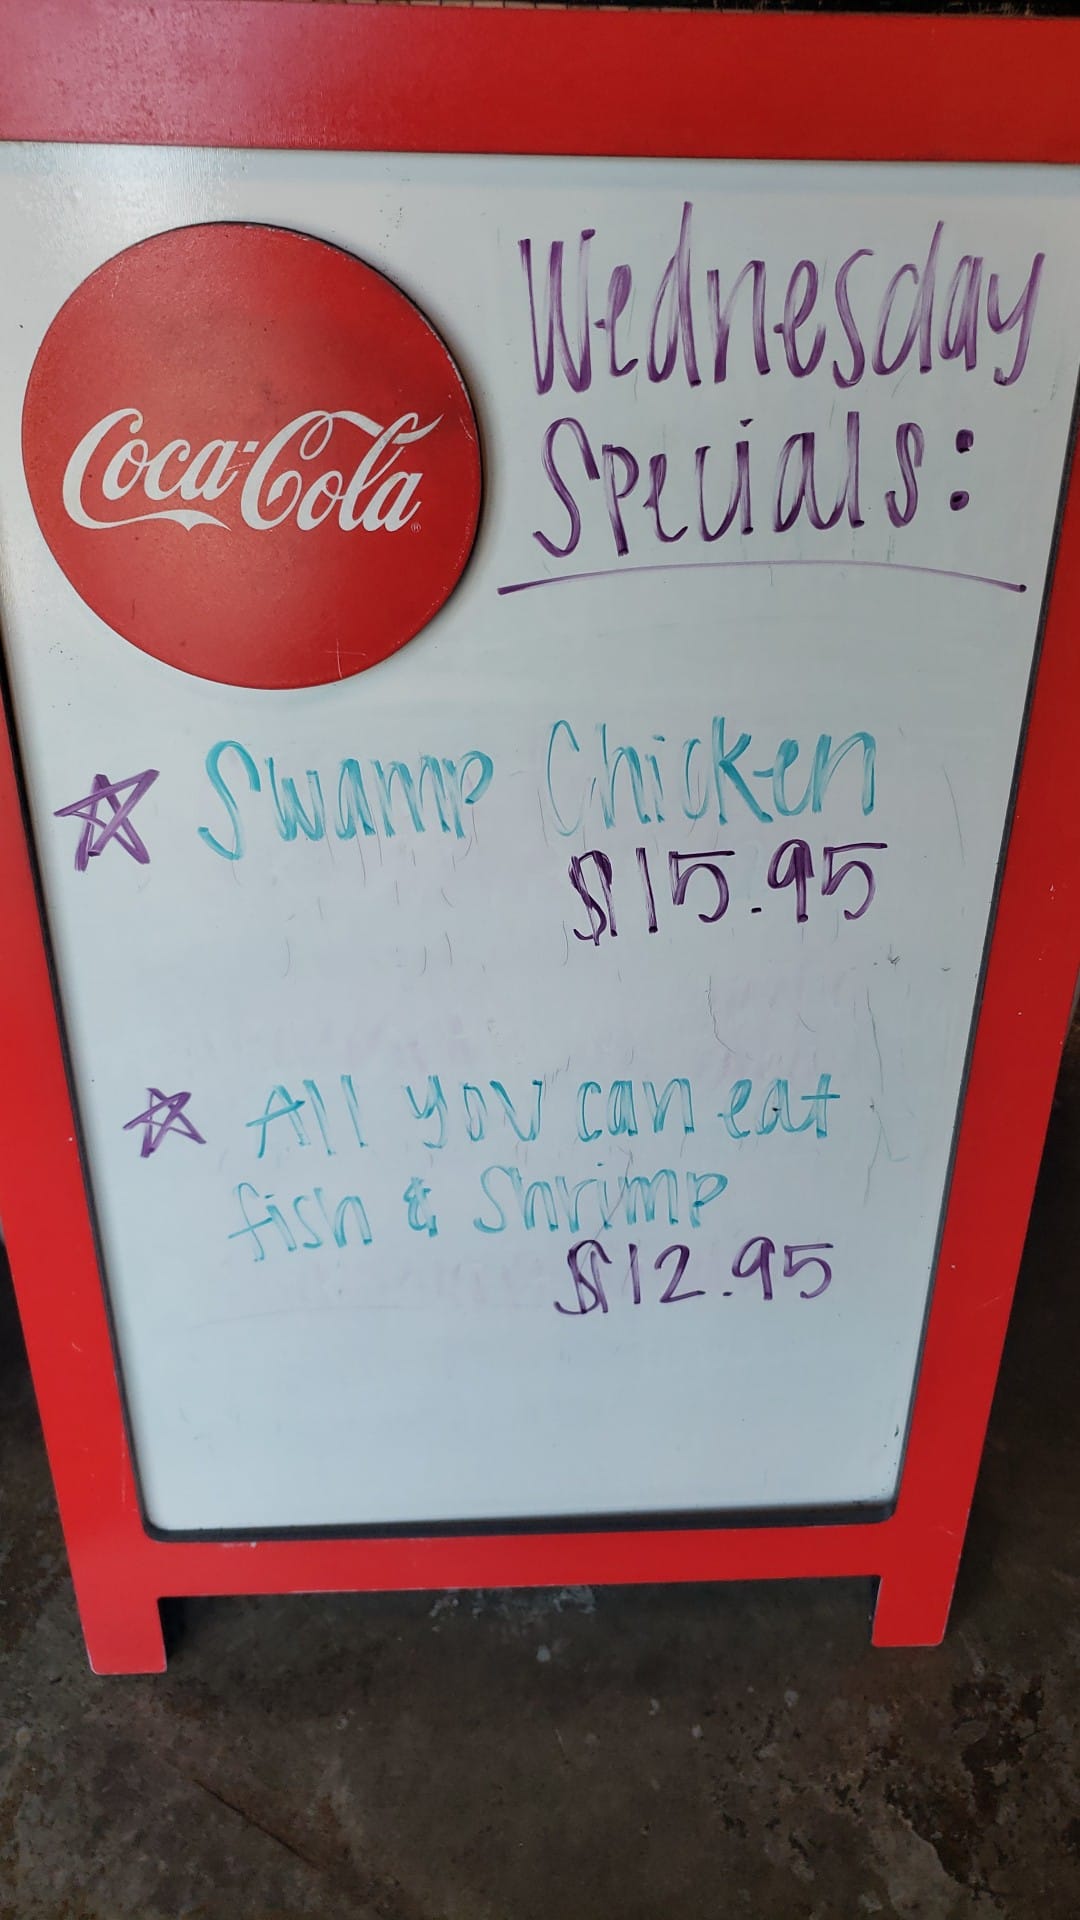 Coca-Cola
Wednesday
Specials:
Swamp Chicken
$15.95
All you can eat
fish & Shrimp
$12.95